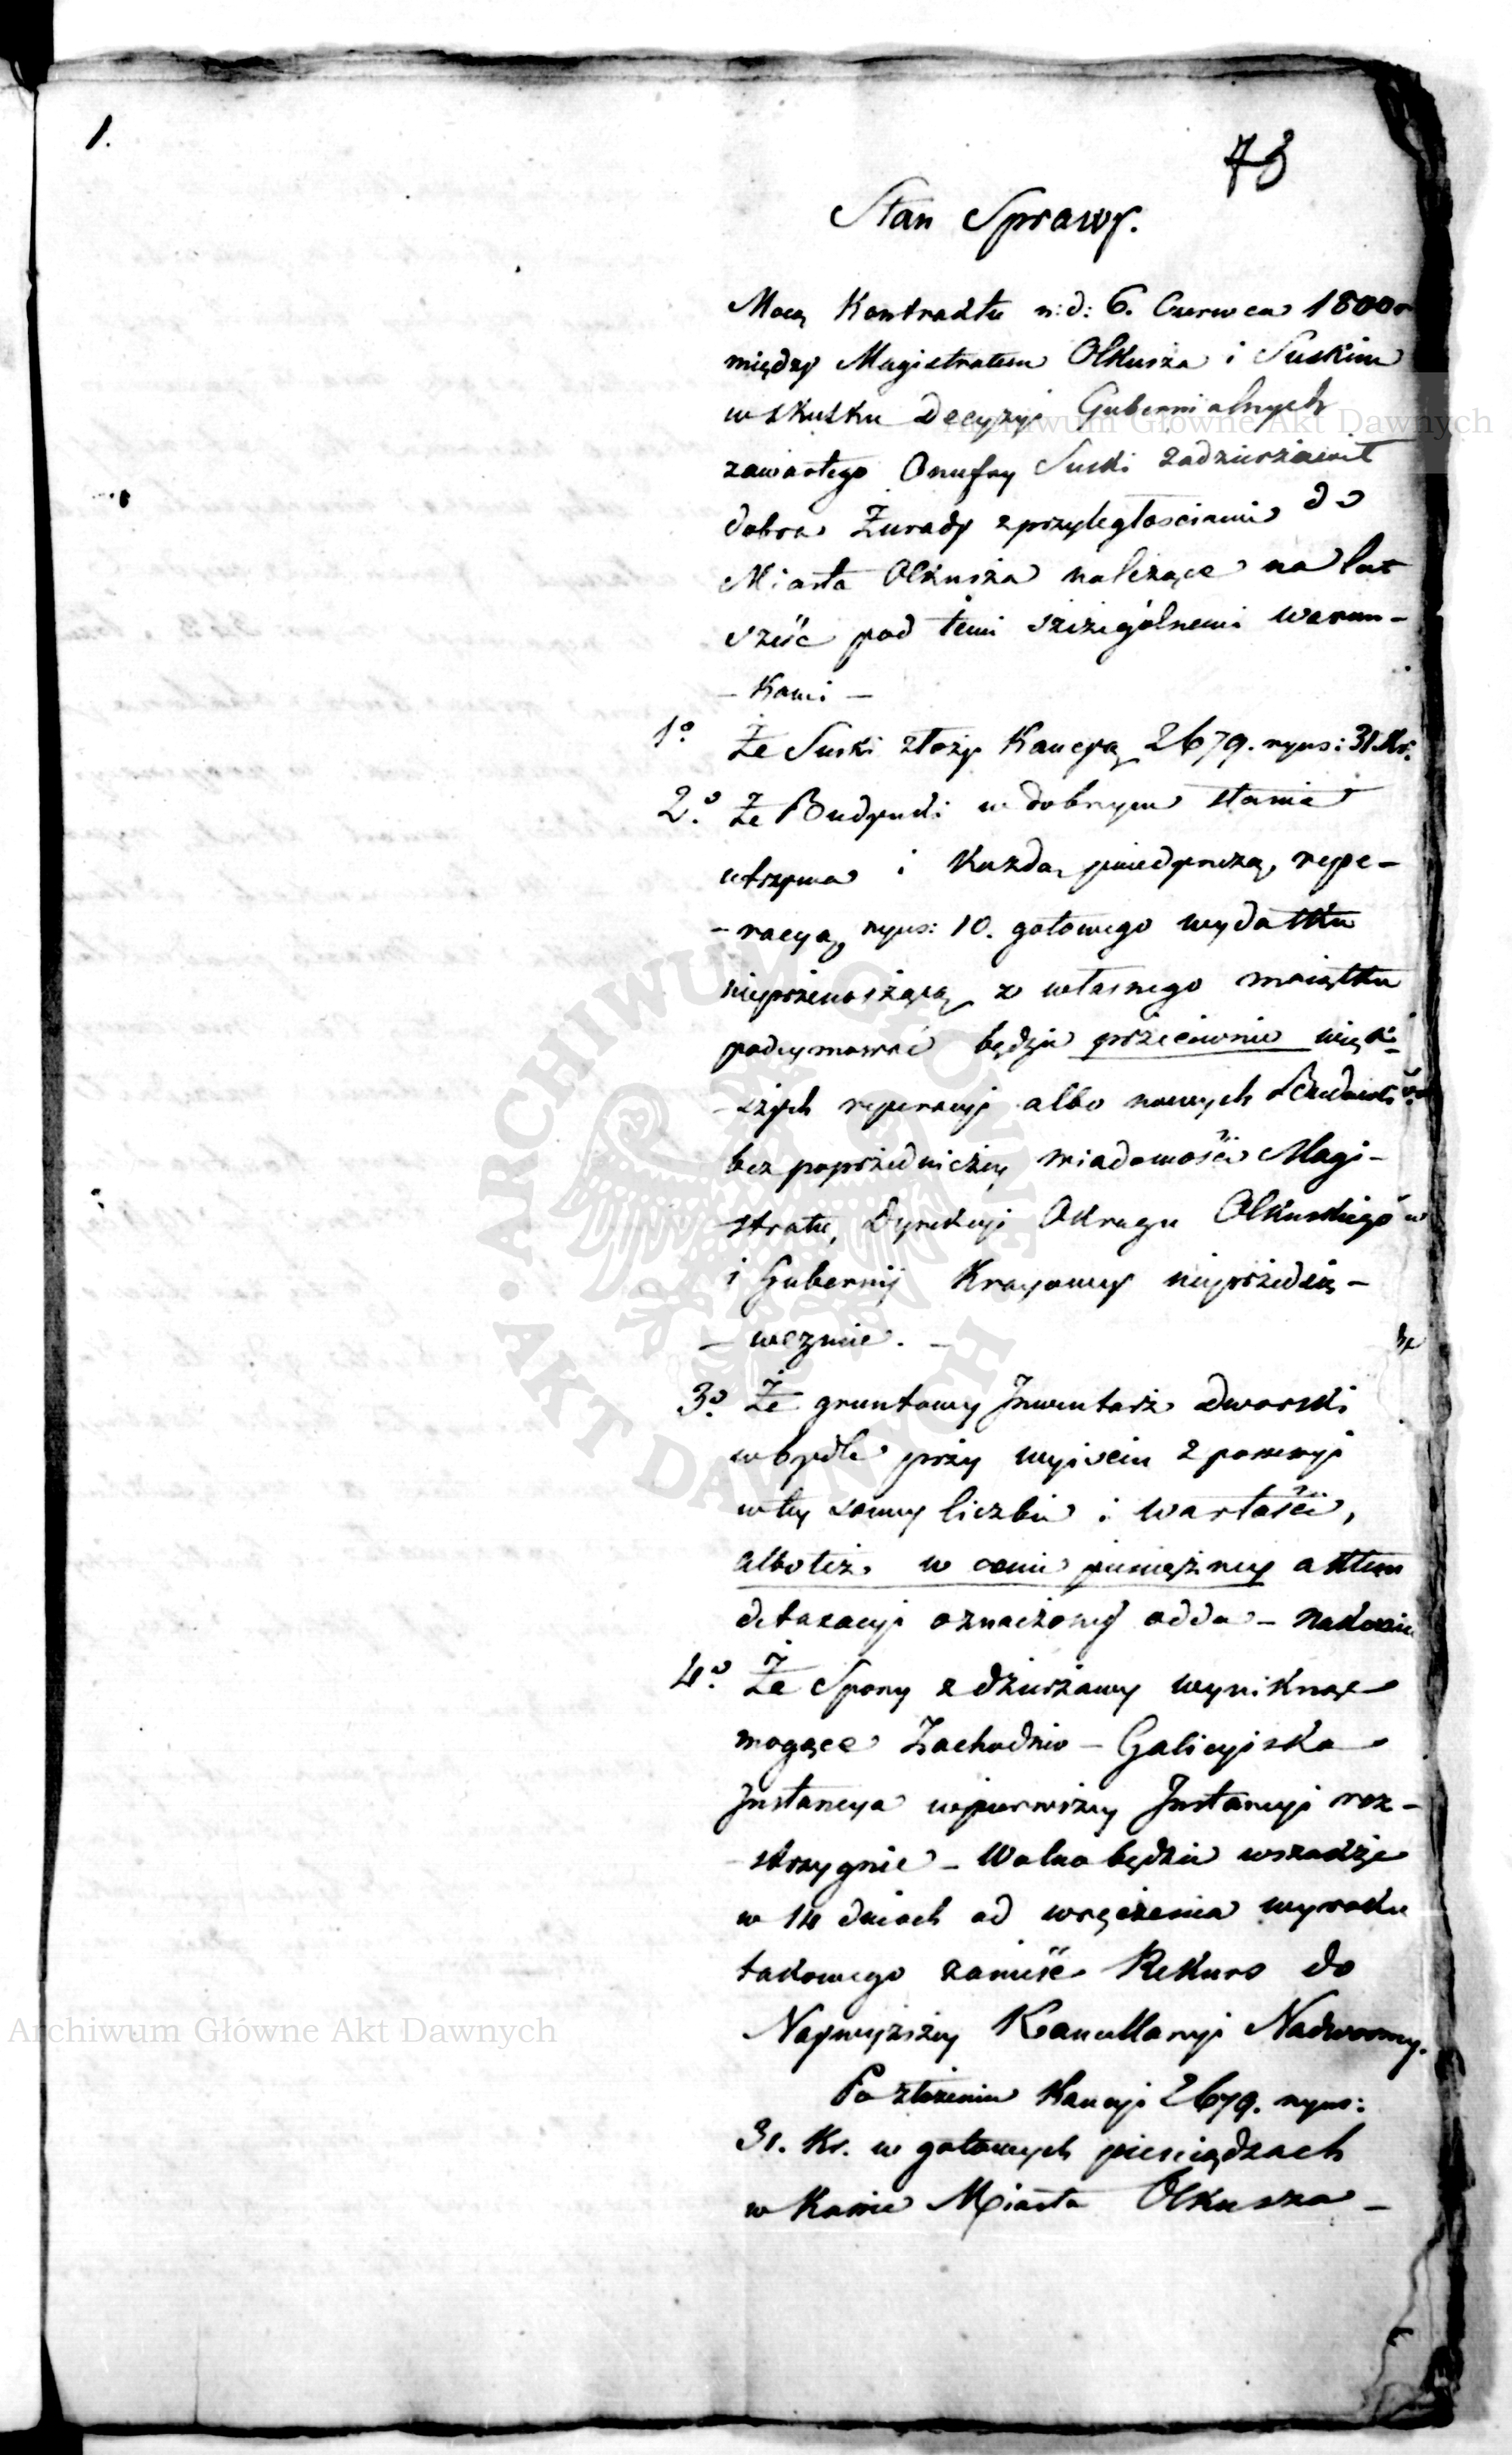 1.
73
Stan Sprawy.
Mocą Kontraktu n: d: 6. Czerwca 1800 r
między Magistratem Olkusza i Suskim
w skutku Decyzyi Gubernialnych
zawartego Onufry Suski zadzierżawił
dobra Żurady z przyległościami do
Miasta Olkusza należące na lat
sześć pod temi szczególnemi warun-
- kami -
1o Że Suski złoży Kaucyą 2679. ryns: 31 Kr.
2o. Że Budynki w dobrym stanie
utrzyma i każdą pojedynczą repe-
- racyą ryns: 10. gotowego wydatku
nieprzenoszącą z własnego majątku
podeymować będzie przeciwnie więk-
- szych reperacyi albo nowych
bez poprzedniczey wiadomości Magi-
stratu, Dyrekcyi Okręgu Olkuskiego
i Gubernij Kraiowey nieprzedsię-
- wezmie. -
3o. Że gruntowy Inwentarz Dworski
w bydle przy wyiściu z possessyi
w tey samey liczbie i wartości,
albo też w cenie pieniężney aktem
detaxacyi oznaczoney odda - nakoniec
4o. Że Spory z dzierżawy wyniknąć
mogące Zachodnio - Galicyiska
Instancya w pierwszey Instancyi roz-
- strzygnie - Wolno będzie wszakże
w 14 dniach od wręczenia wyroku
takowego zanieść Rekurs do
Naywyższey Kancellaryi Nadworney.
Po złożeniu Kaucyi 2679. ryns:
31. Kr. w gotowych pieniądzach
w Kassie Miasta Olkusza -
Archiwum Główne Akt Dawnych
ARCHIWUM GŁÓWNE AKT DAWNYCH
Archiwum Główne Akt Dawnych